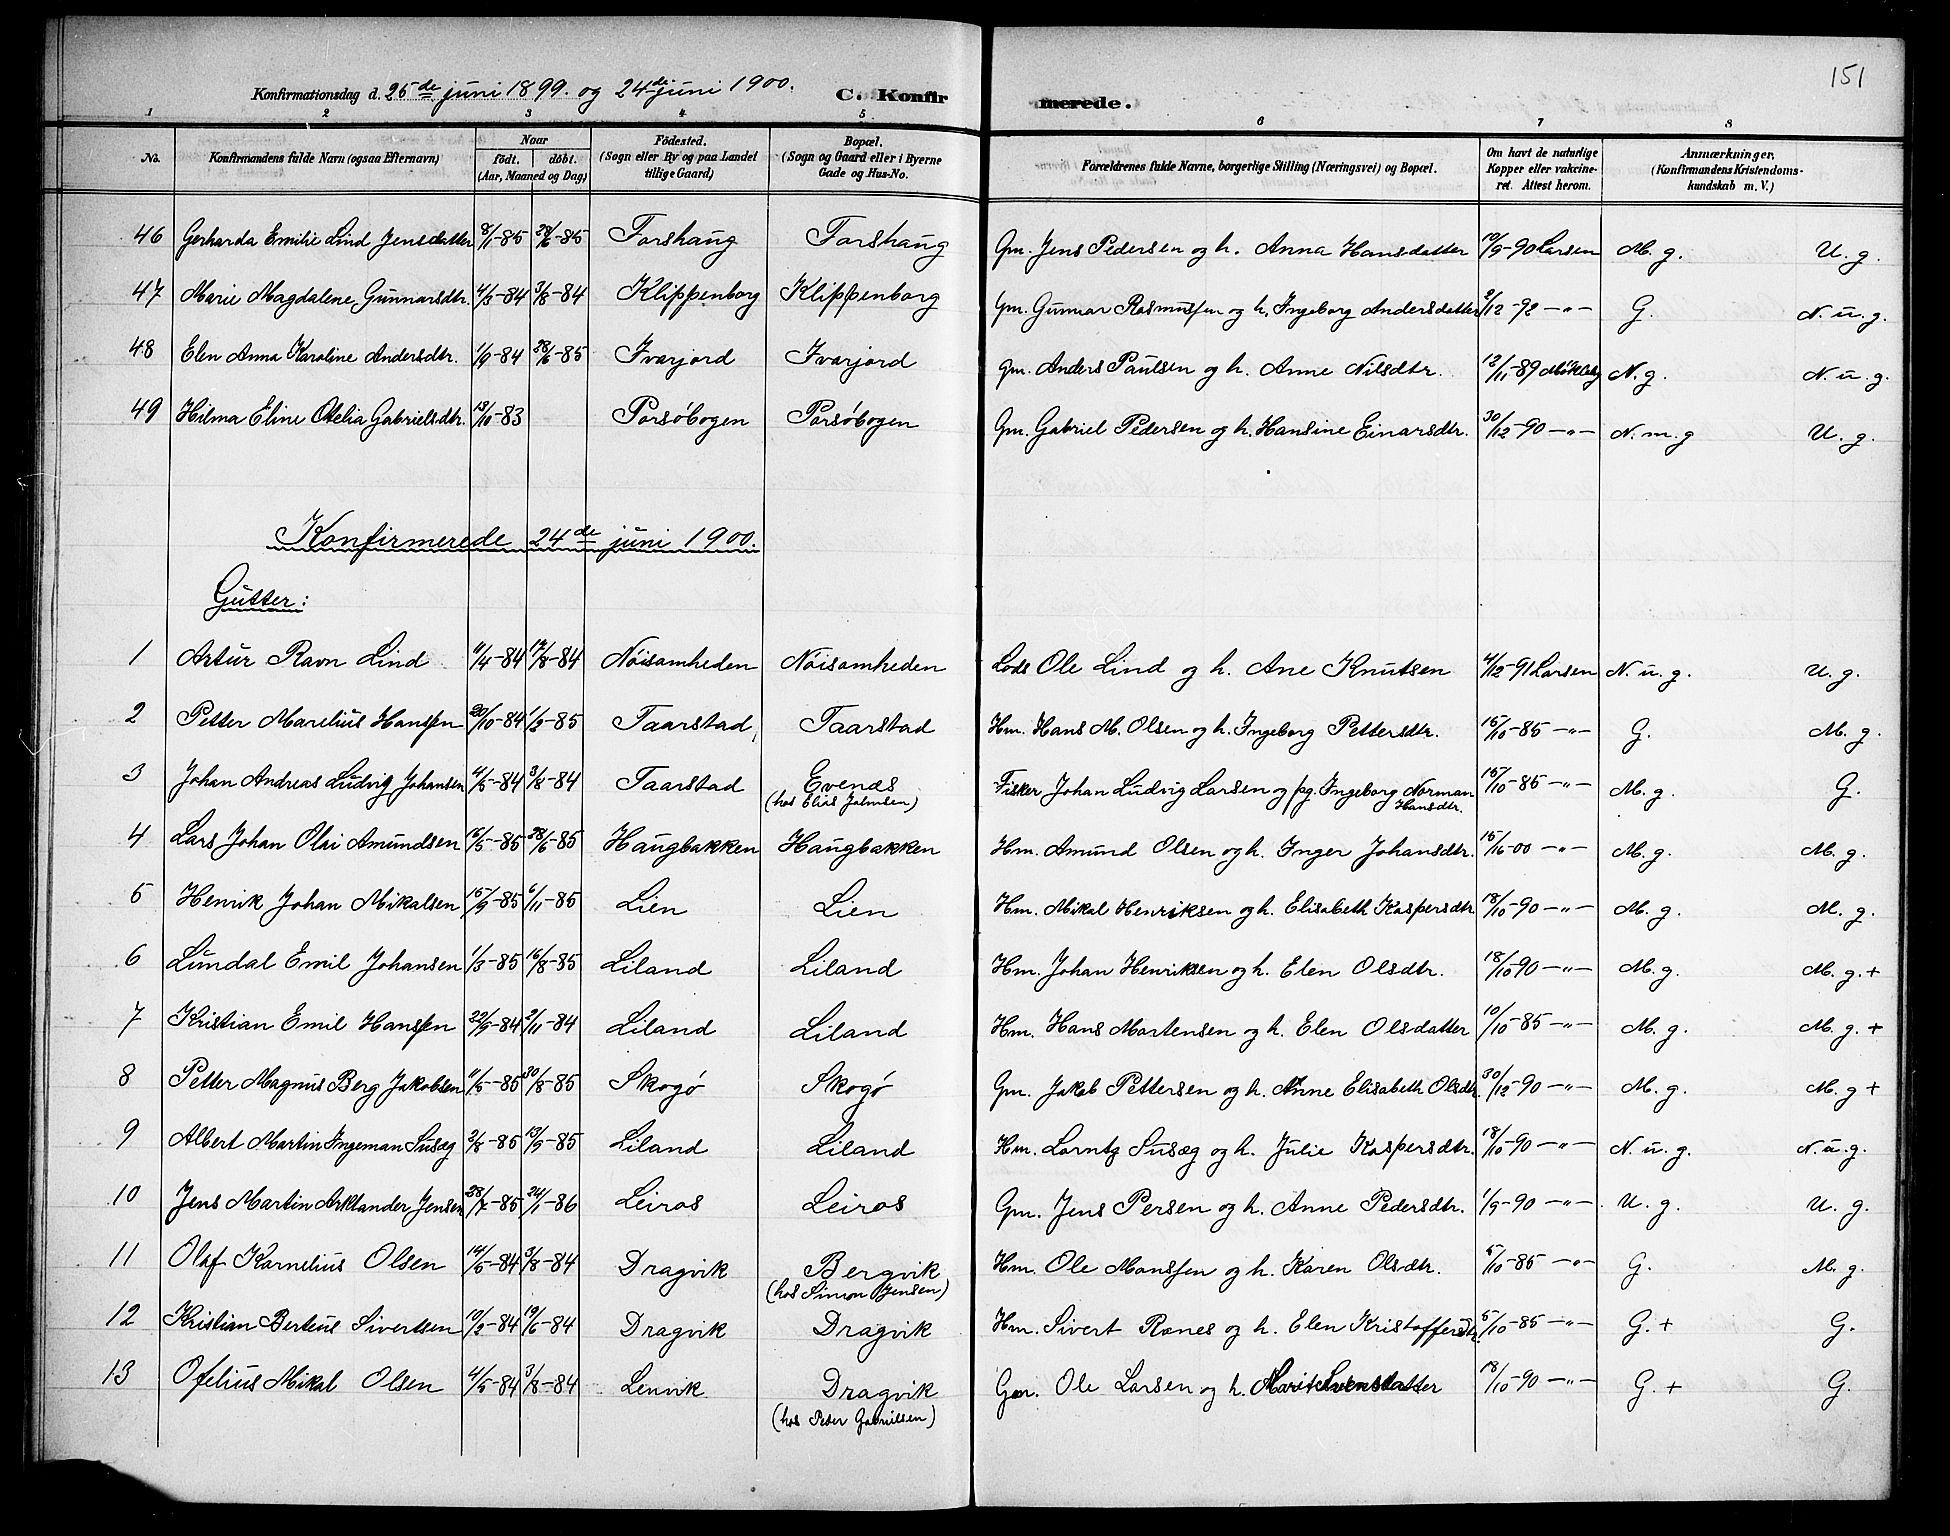 151
Konfirmationsdag d. 25de juni 1899. og 24de juni 1900. C. Konfirmerede.
1 2 3 4 5 6 7 8
No. Konfirmandens fulde Navn (ogsaa Efternavn) Naar født. døbt. (Aar, Maaned og Dag) Fødested. (Sogn eller By og paa Landet tillige Gaard) Bopæl. (Sogn og Gaard eller i Byerne Gade og Hus-No. Forældrenes fulde Navne, borgerlige Stilling (Næringsvei) og Bopæl. Om havt de naturlige Kopper eller vakcineret. Attest herom. Anmærkninger, (Konfirmandens Kristendomskundskab m. V.)
46 Gerharda Emilie Lind Jensdatter 8/1-85 28/6-85 Forshaug Forshaug Gm. Jens Pedersen og h. Anna Hansdatter 10/9-90 Larsen M. g. U. g.
47 Marie Magdalene Gunnarsdtr. 4/3-84 3/8-84 Klippenborg Klippenborg Gm. Gunnar Rasmussen og h. Ingeborg Andersdatter 2/12-92 -"- G. N. u. g.
48 Elen Anna Karoline Andersdtr. 1/9-84 28/6-85 Ivarjord Ivarjord Gm. Anders Paulsen og h. Anne Nilsdtr. 12/11-89 N. g. N. u. g.
49 Hilma Eline Otelia Gabrielsdtr. 13/10-83 Porsøbogen Porsøbogen Gm. Gabriel Pedersen og h. Hansine Einarsdtr. 30/12-90 -"- N. m. g U. g.
Konfirmerede 24de juni 1900.
Gutter:
1 Artur Ravn Lind 11/4-84 17/8-84 Nøisomheden Nøisomheden Lods Ole Lind og h. Ane Knutsen 4/12-91 Larsen N. u. g. U. g.
2 Petter Marelius Hanssen 20/10-84 1/2-85 Taarstad Taarstad Hm. Hans M. Olsen og h. Ingeborg Pettersdtr. 15/10-85 -"- G. M. g.
3 Johan Andreas Ludvig Johansen 4/5-84 3/8-84 Taarstad Evenes (hos Elias Johnsen) Fisker Johan Ludvig Larsen og pg. Ingeborg Norman Hansdtr. 15/10-85 -"- M. g. G.
4 Lars Johan Olai Amundsen 16/5-85 28/6-85 Haugbakken Haugbakken Hm. Amund Olsen og h. Inger Johansdtr. 15/16-00 -"- M. g. M. g.
5 Henrik Johan Mikalsen 15/9-85 6/11-85 Lien Lien Hm. Mikal Henriksen og h. Elisabeth Kaspersdtr. 18/10-90 -"- M. g. M. g.
6 Lundal Emil Johansen 1/3-85 16/8-85 Liland Liland Hm. Johan Henriksen og h. Elen Olsdtr. 18/10-90 -"- M. g. M. g. +
7 Kristian Emil Hanssen 22/9-84 2/11-84 Liland Liland Hm. Hans Martensen og h. Elen Olsdatter 10/10-85 -"- M. g. M. g. +
8 Petter Magnus Berg Jakobsen 11/5-85 30/8-85 Skogø Skogø Gm. Jakob Pettersen og h. Anne Elisabeth Olsdtr. 30/12-90 -"- M. g. M. g +
9 Albert Martin Ingeman Susæg 2/8-85 13/9-85 Liland Liland Hm. Lorntz Susæg og h. Julie Kaspersdtr. 18/10-90 -"- N. u. g. N. u. g.
10 Jens Martin Arktander Jensen 28/7-85 24/1-86 Leiros Leiros Gm. Jens Persen og h. Anne Pedersdtr. 1/9-90 -"- U. g. U. g.
11 Olaf Kornelius Olsen 14/5-84 3/8-84 Dragvik Bergvik (hos Simon Jensen) Hm. Ole Monssen og h. Karen Olsdtr. 5/10-85 -"- G. M. g.
12 Kristian Berteus Sivertsen 10/2-84 19/6-84 Dragvik Dragvik Hm. Sivert Ranes og h. Elen Kristoffersdtr. 5/10-85 -"- G. + G.
13 Ofelius Mikal Olsen 4/5-84 3/8-84 Lenvik Dragvik (hos Peder Gabrielsen) Gm. Ole Larsen og h. Marit Svensdatter 18/10-90 -"- G. + G.